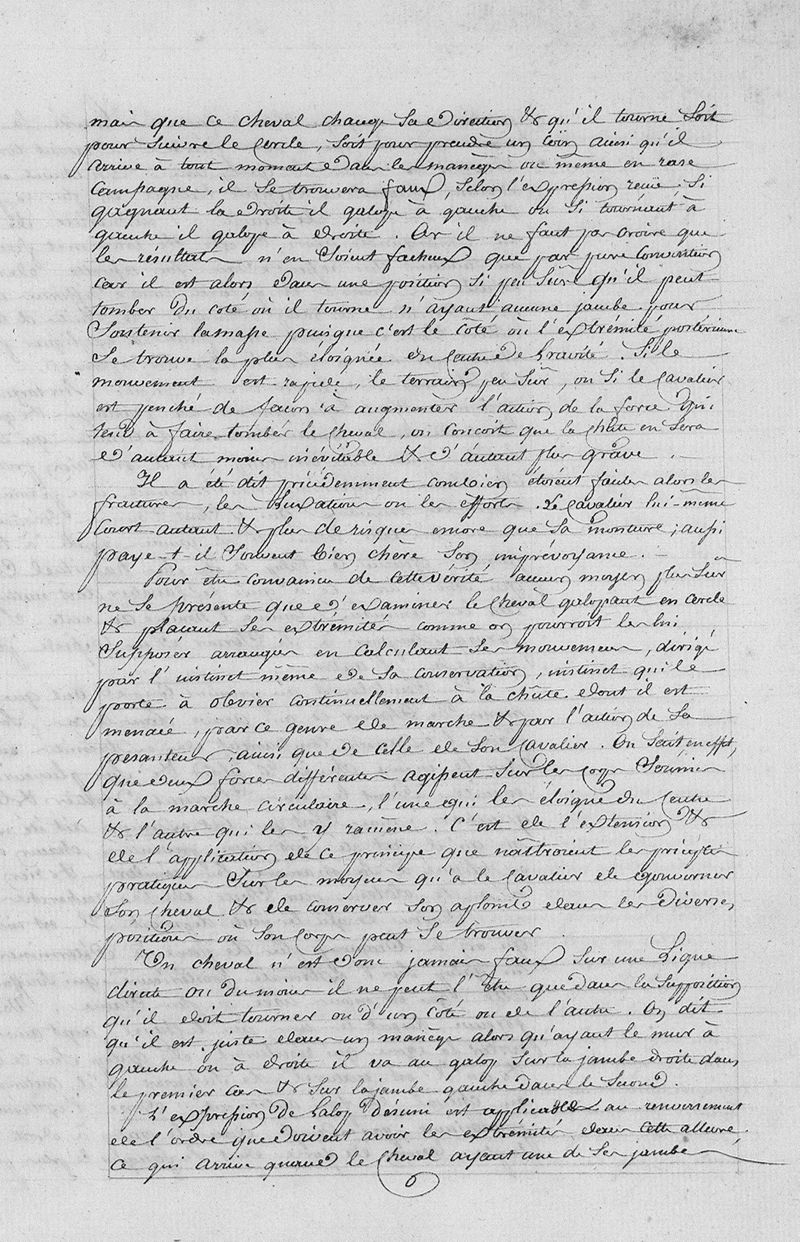 mais que ce cheval change sa direction & qu'il tourne soit
pour suivre le cercle, soit pour prendre un coin ainsi qu'il
arrive à tout moment dans les manèges ou même en rase
campagne, il se trouvera faux, selon l'expression reçue si
gagnant la droite il galope à gauche ou si tournant à
gauche il galope à droite. Or il ne faut pas croire que
les résultats n'en soient facheux que par pure convention
car il est alors dans une position si peu sûre qu'il peut
tomber du coté où il tourne n'ayant aucune jambe pour
soutenir la masse puisque c'est le côté où l'extrémité postérieure
se trouve la plus éloignée du centre de gravité. Si le
mouvement est rapide, le terrain peu sûr, ou si le cavalier
est penché de façon à augmenter l'action de la force qui
tend à faire tomber le cheval, on conçoit que la chûte en sera
d'autant moins inévitable & d'autant plus grave.
Il a été dit précédemment combien étoient faciles alors les
fractures, les luxations ou les efforts. Le cavalier lui-même
court autant & plus de risques encore que sa monture; aussi
paye-t-il souvent bien chère son imprévoyance.
Pour être convaincu de cette vérité aucun moyen plus sûr
ne se présente que d'examiner le cheval galopant en cercle
& plaçant ses extrémités comme on pourroit les lui
supposer arrangées en calculant ses mouvemens, dirigé
par l'instinct même de sa conservation, instinct qui le
porte à obvier continuellement à la chûte dont il est
menacé, par ce genre de marche & par l'action de sa
pesanteur, ainsi que de celle de son cavalier. On sait en effet,
que deux forces différentes agissent sur les corps soumis
à la marche circulaire, l'une qui les éloigne du centre
& l'autre qui les y ramène. C'est de l'extension &
de l'application de ce principe que naîtroient les préceptes
pratiques sur les moyens qu'a le cavalier de gouverner
son cheval & de conserver son aplomb dans les diverses
positions où son corps peut se trouver.
Un cheval n'est donc jamais faux sur une ligne
directe ou du moins il ne peut l'être que dans la supposition
qu'il doit tourner ou d'un côté ou de l'autre. On dit
qu'il est juste dans un manège alors qu'ayant le mur à
gauche ou à droite il va au galop sur la jambe droite dans
le premier cas & sur la jambe gauche dans le second.
L'expression de galop désuni est applicable au renversement
de l'ordre que doivent avoir les extrémités dans cette allure.
ce qui arrive quand le cheval ayant une de ses jambes